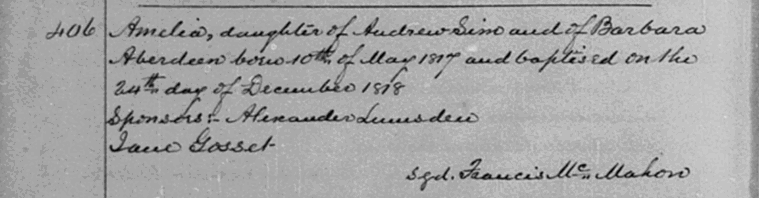 406 Amelia, daughter of Andrew Sim and of Barbara
Aberdeen born 10th of May 1817 and baptised on the
24th day of December 1818
Sponsors:- Alexander Lumsden
Jane Gosset
sgd. Francis Mc Mahon